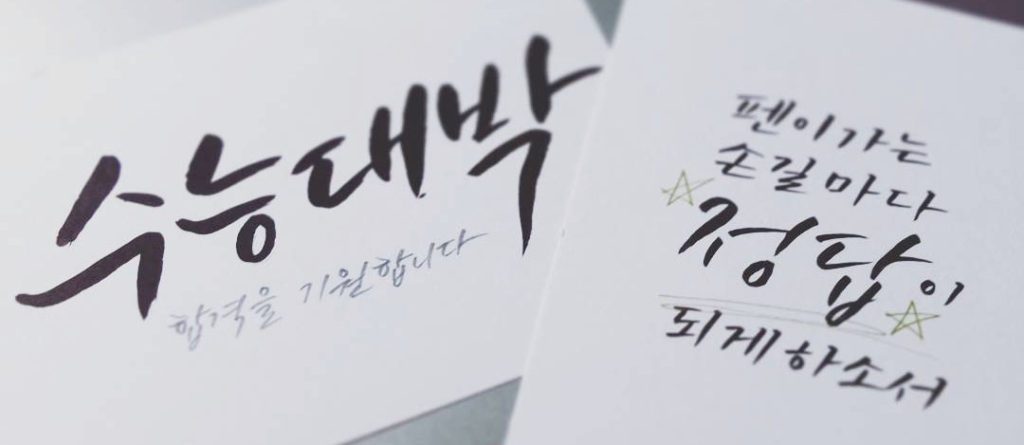 수능대박
합격을 기원합니다
펜이가는
손길마다
정답이
되게하소서